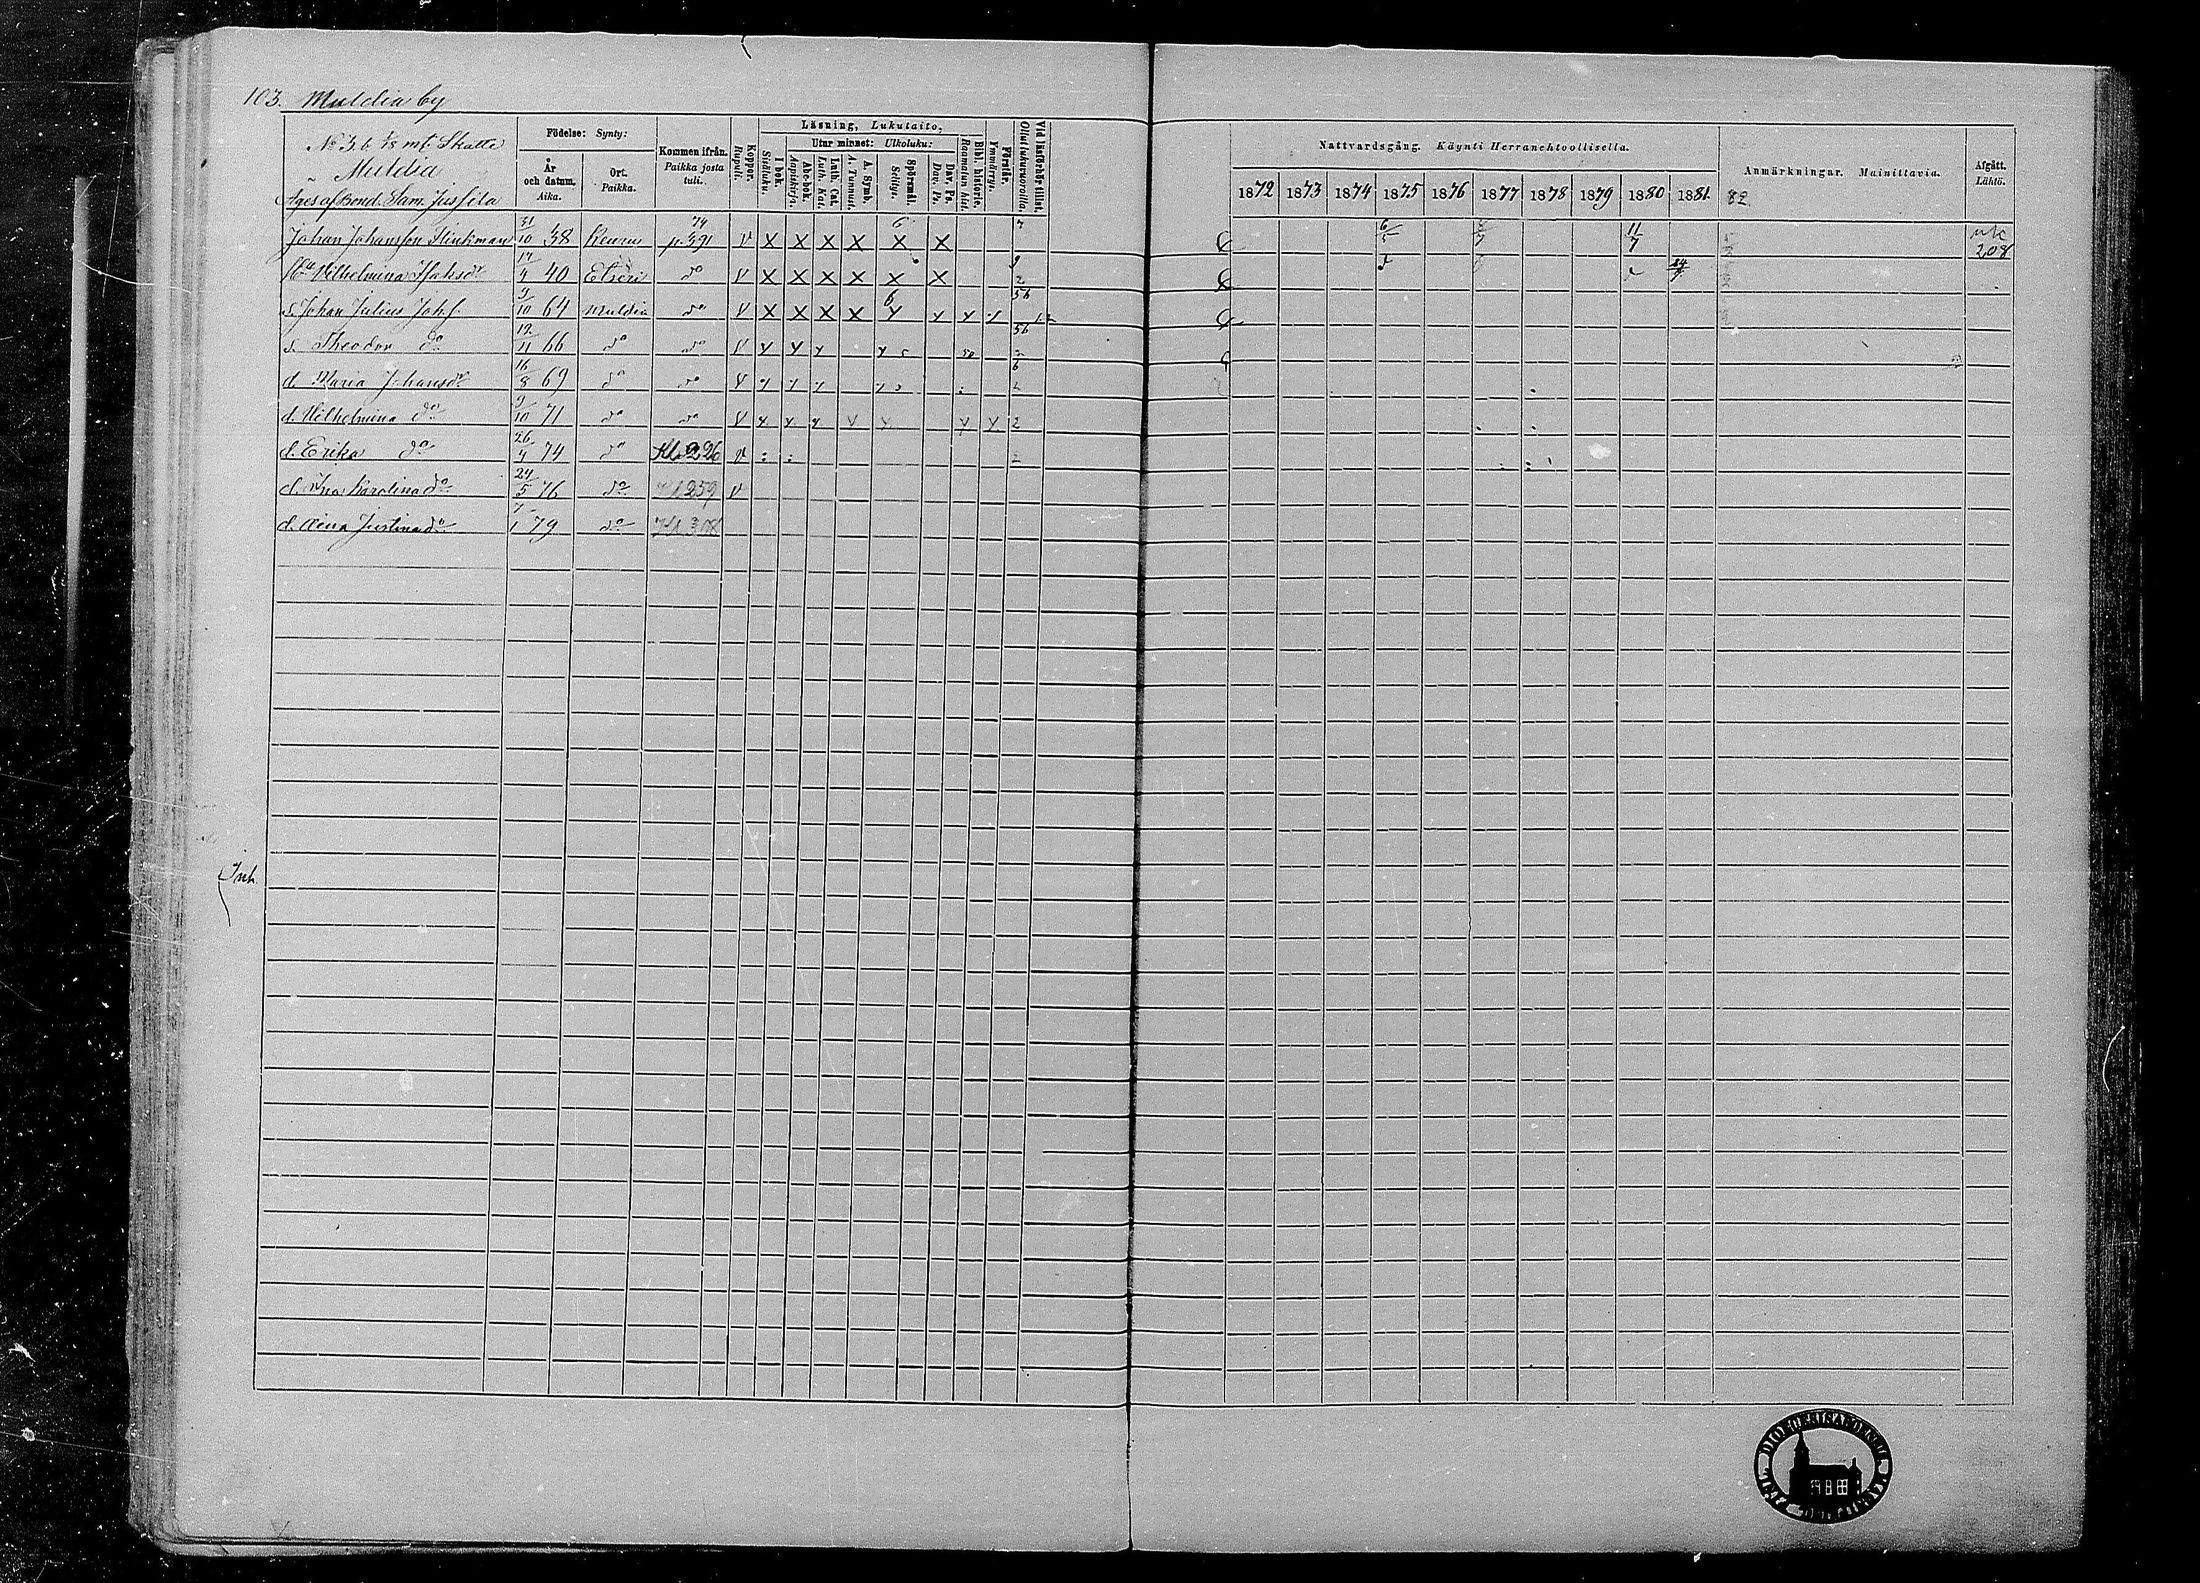 103. Muldia by
No 3. b. 1/8 mt. Skatte
Muldia
Äges af Bond. Sam. Jussila
Födelse: Synty:
År och datum. Aika.
Ort. Paikka.
Kommen ifrån. Paikka josta tuli.
Koppor. Rupuli.
Läsning, Lukutaito,
I bok. Sisäluku.
Utur minnet: Ulkoluku:
Abc-bok. Aapiskirja.
Luth. Cat. Luth. Kat.
A. Symb. A. Tunnust.
Spörsmål. Selitys.
Dav. Ps. Dav. Ps.
Bibl. historie. Raamatun hist.
Förstår. Ymmärrys.
Vid läsförhör tillst. Ollut lukuvuoroilla.
Nattvardsgång. Käynti Herranehtoollisella.
1872 1873 1874 1875 1876 1877 1878 1879 1880 1881 82
Anmärkningar. Mainittavia.
Afgått. Lähtö.
Johan Johansson Flinkman 31/10 38 Keuru 74 p. 391 V X X X X 6 X X 6/5 11/7 208
Wilhelmina Isaksdr 17/4 40 Etseri do V X X X X X X 24/7
s. Johan Julius Johs. 9/10 64 Muldia do V X X X X 6
s. Theodor do 19/11 66 do do V
d. Maria Johansdr 16/8 69 do do V
d. Wilhelmina do 9/10 71 do do V
d. Erika do 26/4 74 do Kl. 226 V
d. Ina Karolina do 24/5 76 do 259 V
d. Aina Justina do 7/1 79 do
Inh.